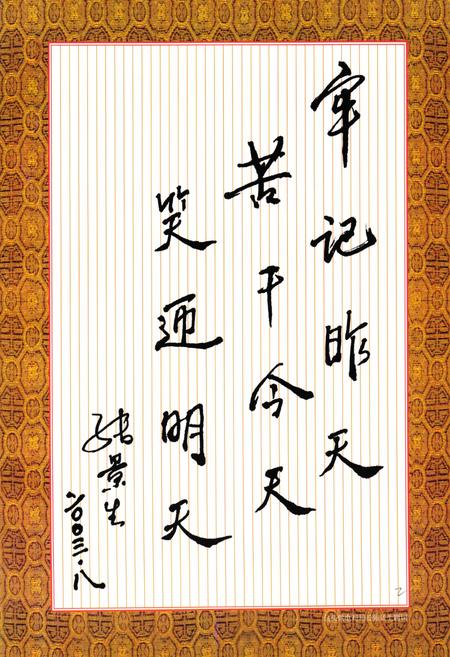 牢记昨天
苦干今天
笑迎明天
张景生
二〇〇三·八